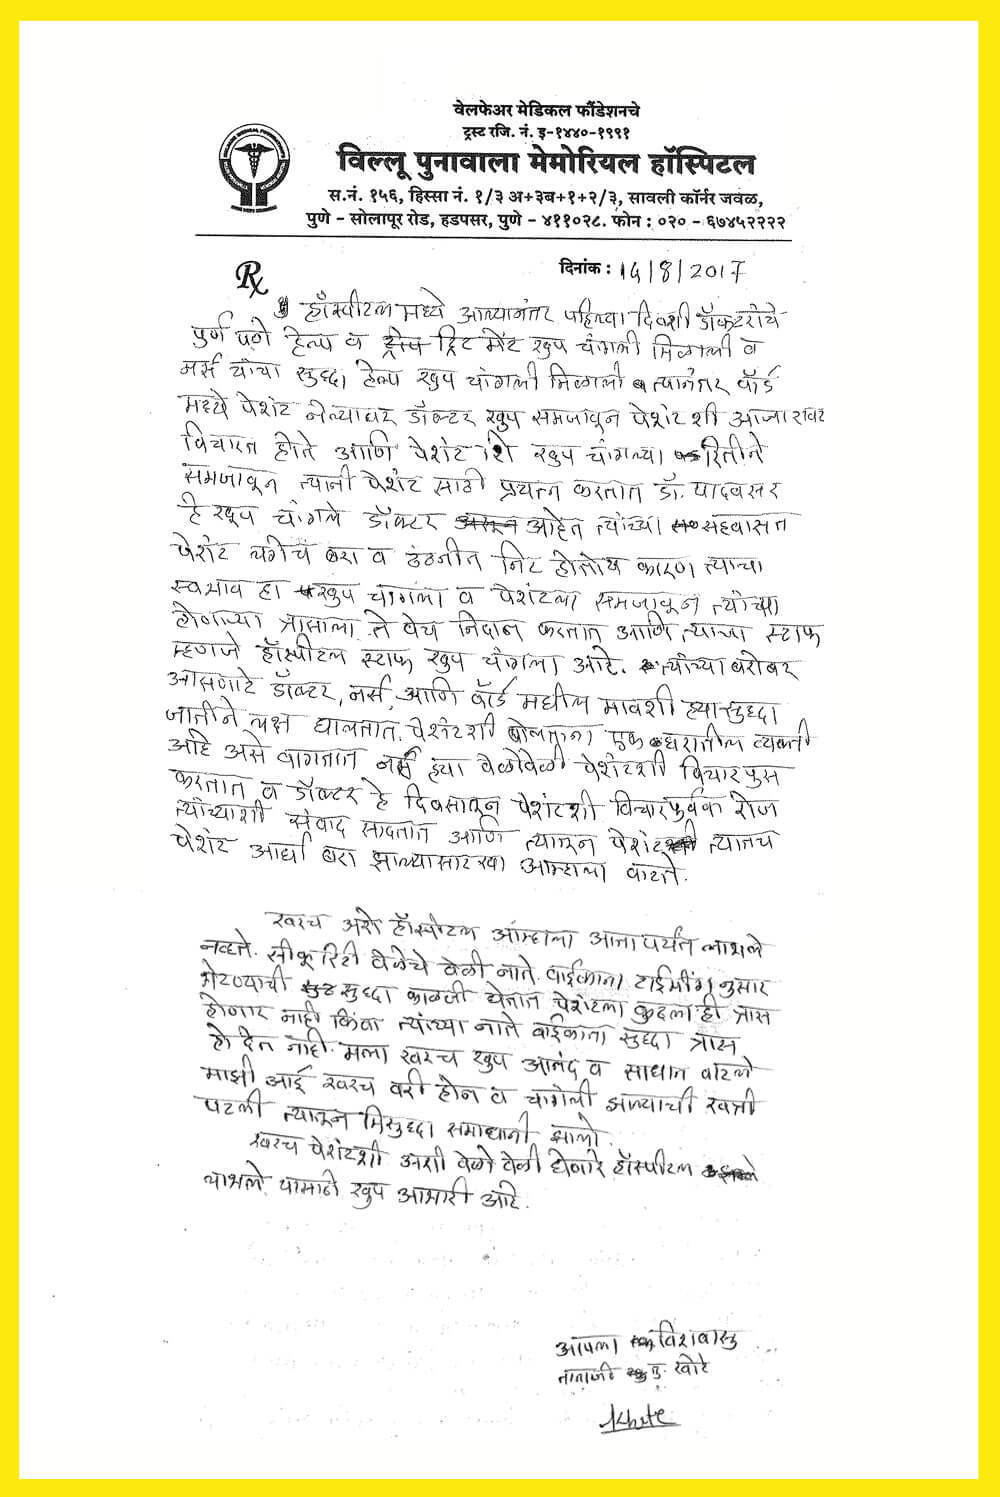 वेलफेअर मेडिकल फौंडेशनचे
ट्रस्ट रजि. नं. इ-१४४०-१९९१
विल्लू पुनावाला मेमोरियल हॉस्पिटल
स.नं. १५६, हिस्सा नं. १/३ अ+३ब+१+२/३, सावली कॉर्नर जवळ,
पुणे - सोलापूर रोड, हडपसर, पुणे - ४११०२८. फोन : ०२० - ६७४५२२२२
दिनांक : 14/8/2017
Rx
हॉस्पीटल मध्ये आल्यानंतर पहिल्या दिवशी डॉक्टरांचे
पुर्ण पणे हेल्प व ट्रिटमेंट खुप चांगली मिळाली व
नर्स यांचा सुध्दा हेल्प खुप चांगली मिळाली त्यानंतर वॉर्ड
मध्ये पेशंट नेल्यावर डॉक्टर खुप समजावून पेशंटशी आजारावर
विचारत होते आणि पेशंट शि खुप चांगल्या रितीने
समजावून त्यानी पेशंट साठी प्रयत्न करतात डॉ. यादवसर
हे खूप चांगले डॉक्टर आहेत त्यांच्या सहवासात
पेशंट लगेच बरा व ठणठणीत निट होतोय कारण त्याचा
स्वभाव हा खुप चांगला व पेशंटला समजावून त्यांच्या
होणाऱ्या त्रासाला ते वेच निदान करतात आणि त्याचा स्टाफ
म्हणजे हॉस्पीटल स्टाफ खुप चांगला आहे. त्यांच्या बरोबर
आसणारे डॉक्टर, नर्स, आणि वॉर्ड मधील मावशी ह्यासुध्दा
जातीने लक्ष घालतात. पेशंटशी बोलताना एक घरातील व्यक्ती
आहे असे वागतात नर्स ह्या वेळोवेळी पेशंटशी विचारपुस
करतात व डॉक्टर हे दिवसातून पेशंटशी विचारपुर्वक रोज
त्यांच्याशी संवाद साधतात आणि त्यातून पेशंट त्यातच
पेशंट आर्धा बरा झाल्यासारखा आम्हाला वाटते.
खरच असे हॉस्पीटल आम्हाला आता पर्यंत लाभले
नव्हते. सीकूरिटी वेळेचे वेळी नाते वाईकाना टाईमींग नुसार
भेटण्याची सुध्दा काळजी घेतात पेशंटला कुठलाही त्रास
होणार नाही किंवा त्यांच्या नाते वाईकाना सुध्दा त्रास
हो देत नाही. मला खरच खुप आनंद व वाटले
माझी आई खरच बरी होन व चांगली झाल्याची खात्री
पटली त्यातून मिसुध्दा समाधानी झालो.
खरच पेशंटशी अशी वेळो वेळी घेणारे हॉस्पीटल
लाभले यासाठी खुप आभारी आहे.
आपला विश्वासु
तानाजी तु. खोटे